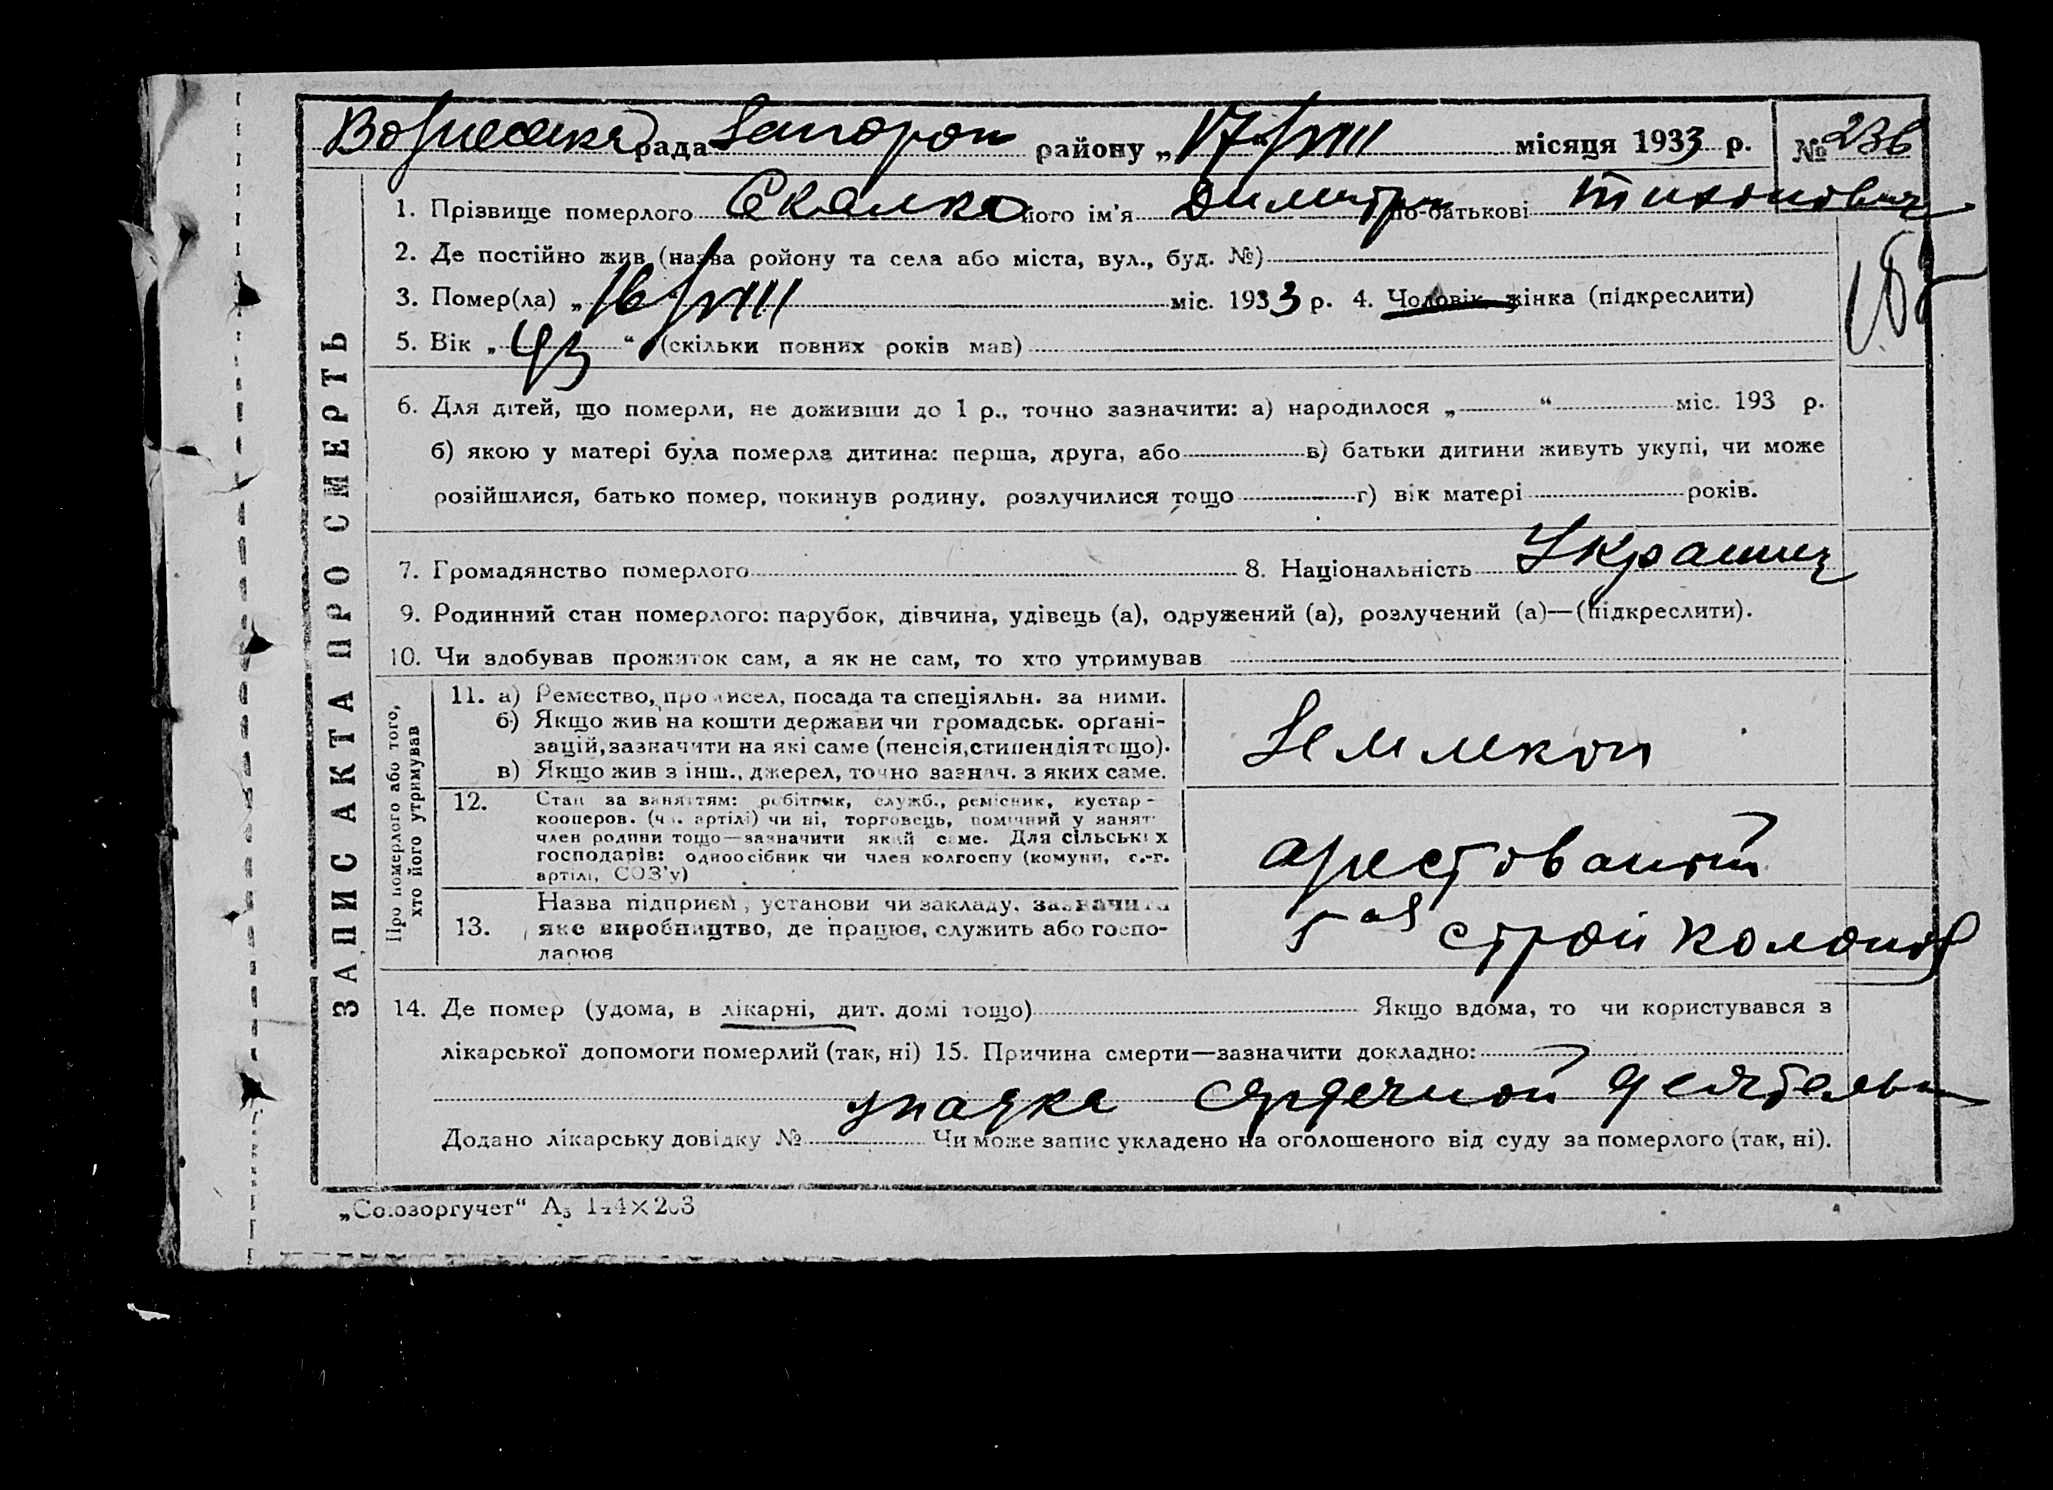 Вознесенка рада Запорож району „17/VIII місяця 1933 р. № 236
1. Прізвище померлого Скалко його ім'я Димитри по-батькові Тихонович
2. Де постійно жив (назва ройону та села або міста, вул., буд. №)
3. Помер(ла) „16/VIII міс. 1933 р. 4. Чоловік жінка (підкреслити)
5. Вік „43“ (скільки повних років мав)
6. Для дітей, що померли, не доживши до 1 р., точно зазначити: а) народилося „ “ міс. 193 р.
б) якою у матері була померла дитина: перша, друга, або в) батьки дитини живуть укупі, чи може
розійшлися, батько помер, покинув родину, розлучилися тощо г) вік матері років.
7. Громадянство померлого 8. Національність Украинц
9. Родинний стан померлого: парубок, дівчина, удівець (а), одружений (а), розлучений (а)—(підкреслити).
10. Чи здобував прожиток сам, а як не сам, то хто утримував
ЗАПИС АКТА ПРО СМЕРТЬ
Про померлого або того,
хто його утримував
11. а) Ремество, промисел, посада та спеціяльн. за ними.
б) Якщо жив на кошти держави чи громадськ. орґані-
зацій, зазначити на які саме (пенсія, стипендія тощо).
в) Якщо жив з інш., джерел, точно зазнач. з яких саме.
Землекоп
12. Стан за заняттям: робітник, служб., ремісник, кустар-
кооперов. (чл. артілі) чи ні, торговець, помічний у занят
член родини тощо—зазначити який саме. Для сільських
господарів: одноосібник чи член колгоспу (комуни, с.-г.
артілі, СОЗ'у)
арестований
13. Назва підприєм., установи чи закладу, зазначити
яке виробництво, де працює, служить або госпо-
дарює
5ая строй колония
14. Де помер (удома, в лікарні, дит. домі тощо) Якщо вдома, то чи користувався з
лікарської допомоги померлий (так, ні) 15. Причина смерти—зазначити докладно:
упадке сердечной деятельн
Додано лікарську довідку № Чи може запис укладено на оголошеного від суду за померлого (так, ні).
„Союзоргучет“ А₅ 144×203